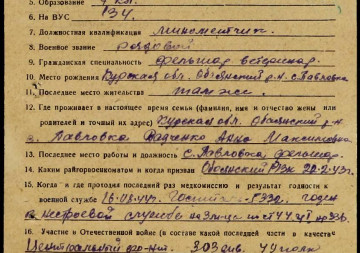 5. Образование 7 кл.
6. На ВУС 134
7. Должностная квалификация миномётчик
8. Военное звание рядовой
9. Гражданская специальность фельдшер ветеринар.
10. Место рождения Курская обл. Обоянский р-н. с. Павловка
11. Последнее место жительства там же
12. Где проживает в настоящее время семья (фамилия, имя и отчество жены или
родителей и точный их адрес) Курская обл. Обоянский р-н
с. Павловка Радченко Анна Максимовна
13. Последнее место работы и должность с. Павловка фельдшер.
14. Каким райгорвоенкоматом и когда призван Обоянский РВК 20-2-43г.
15. Когда и где проходил последний раз медкомиссию и результат годности к
военной службе 16.08.44г. годен
к нестроевой службе на 3 м-ца по ст 44
16. Участие в Отечественной войне (в составе какой последней части в качестве
Центральный фронт. 303 див. 49 полк